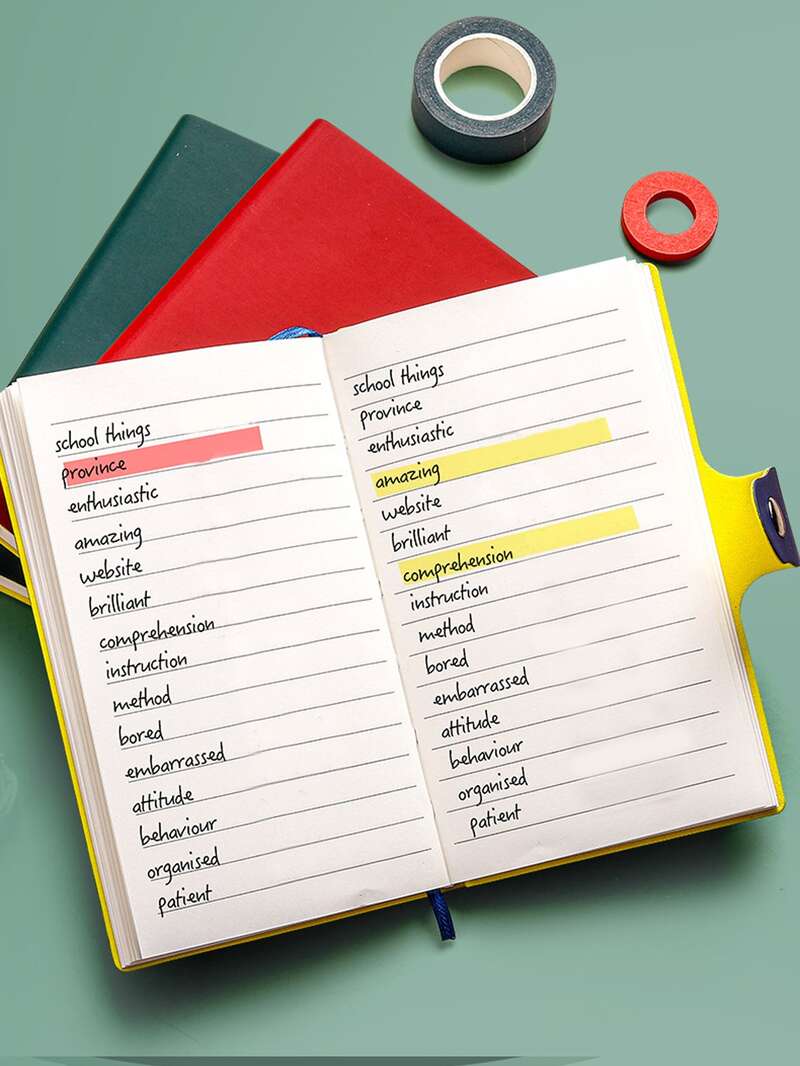 school things
province
enthusiastic
amazing
website
brilliant
comprehension
instruction
method
bored
embarrassed
attitude
behaviour
organised
patient
school things
province
enthusiastic
amazing
website
brilliant
comprehension
instruction
method
bored
embarrassed
attitude
behaviour
organised
patient